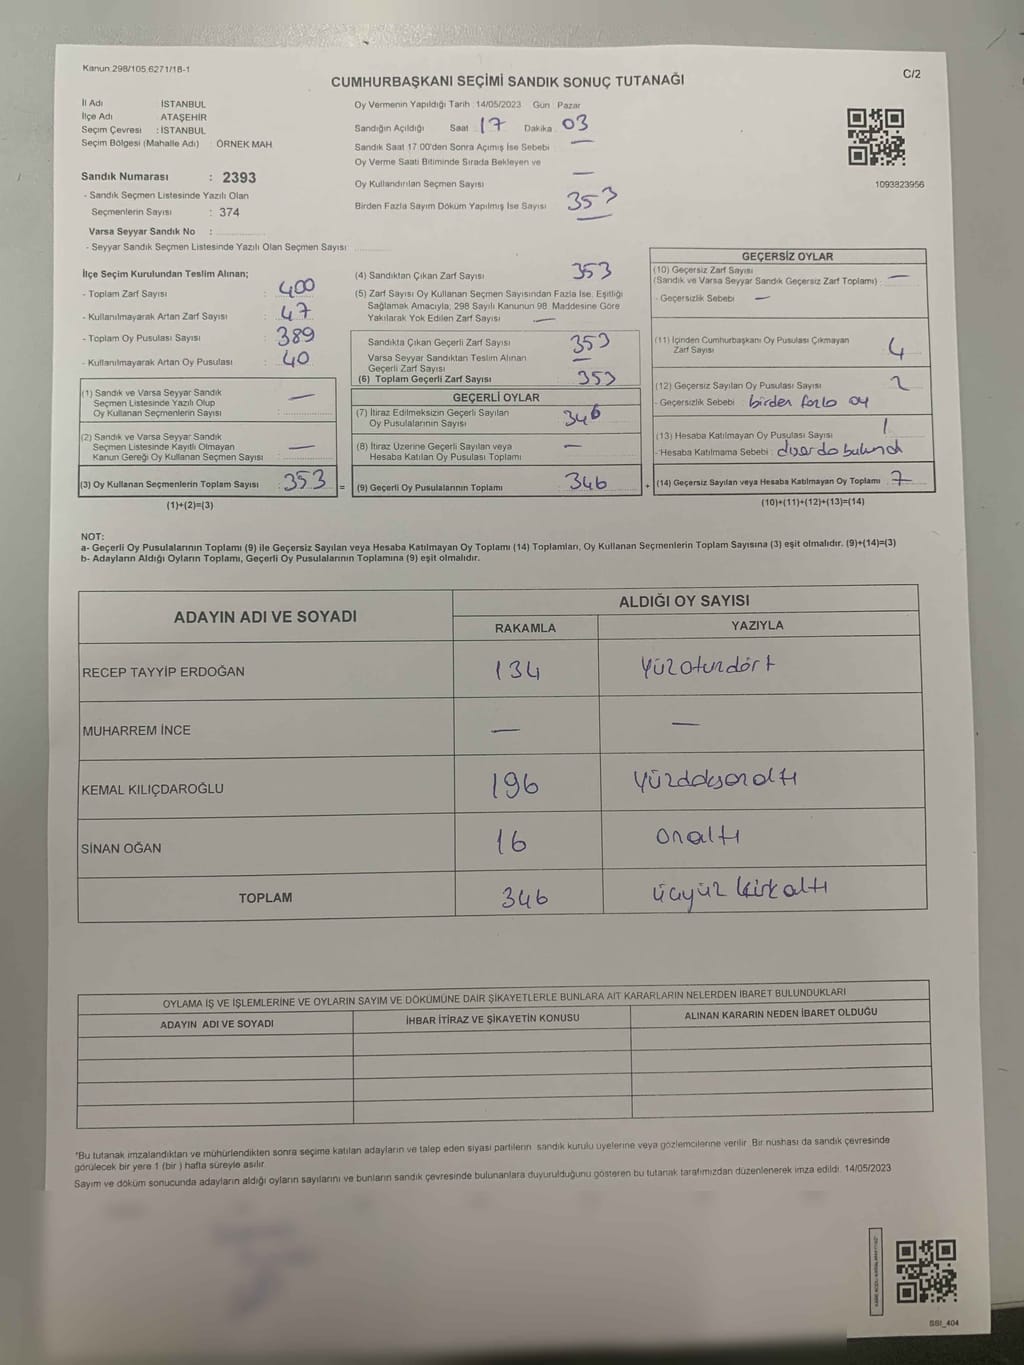 Kanun 298/105 6271/18-1
C/2
CUMHURBAŞKANI SEÇİMİ SANDIK SONUÇ TUTANAĞI
İl Adı İSTANBUL
İlçe Adı ATAŞEHİR
Seçim Çevresi : İSTANBUL
Seçim Bölgesi (Mahalle Adı) : ÖRNEK MAH
Sandık Numarası : 2393
- Sandık Seçmen Listesinde Yazılı Olan
Seçmenlerin Sayısı : 374
Varsa Seyyar Sandık No :
- Seyyar Sandık Seçmen Listesinde Yazılı Olan Seçmen Sayısı
Oy Vermenin Yapıldığı Tarih : 14/05/2023 Gün : Pazar
Sandığın Açıldığı Saat 17 Dakika 03
Sandık Saat 17 00'den Sonra Açımış İse Sebebi —
Oy Verme Saati Bitiminde Sırada Bekleyen ve
Oy Kullandırılan Seçmen Sayısı —
Birden Fazla Sayım Döküm Yapılmış İse Sayısı 353
1093823956
İlçe Seçim Kurulundan Teslim Alınan;
- Toplam Zarf Sayısı : 400
- Kullanılmayarak Artan Zarf Sayısı : 47
- Toplam Oy Pusulası Sayısı : 389
- Kullanılmayarak Artan Oy Pusulası : 40
(1) Sandık ve Varsa Seyyar Sandık
Seçmen Listesinde Yazılı Olup
Oy Kullanan Seçmenlerin Sayısı : —
(2) Sandık ve Varsa Seyyar Sandık
Seçmen Listesinde Kayıtlı Olmayan
Kanun Gereği Oy Kullanan Seçmen Sayısı : —
(3) Oy Kullanan Seçmenlerin Toplam Sayısı : 353
(1)+(2)=(3)
(4) Sandıktan Çıkan Zarf Sayısı 353
(5) Zarf Sayısı Oy Kullanan Seçmen Sayısından Fazla İse, Eşitliği
Sağlamak Amacıyla, 298 Sayılı Kanunun 98. Maddesine Göre
Yakılarak Yok Edilen Zarf Sayısı —
Sandıkta Çıkan Geçerli Zarf Sayısı 353
Varsa Seyyar Sandıktan Teslim Alınan
Geçerli Zarf Sayısı —
(6) Toplam Geçerli Zarf Sayısı 353
GEÇERLİ OYLAR
(7) İtiraz Edilmeksizin Geçerli Sayılan
Oy Pusulalarının Sayısı 346
(8) İtiraz Üzerine Geçerli Sayılan veya
Hesaba Katılan Oy Pusulası Toplamı —
= (9) Geçerli Oy Pusulalarının Toplamı 346
GEÇERSİZ OYLAR
(10) Geçersiz Zarf Sayısı
(Sandık ve Varsa Seyyar Sandık Geçersiz Zarf Toplamı) —
- Geçersizlik Sebebi —
(11) İçinden Cumhurbaşkanı Oy Pusulası Çıkmayan
Zarf Sayısı 4
(12) Geçersiz Sayılan Oy Pusulası Sayısı 2
- Geçersizlik Sebebi birden fazla oy
(13) Hesaba Katılmayan Oy Pusulası Sayısı 1
- Hesaba Katılmama Sebebi :
+ (14) Geçersiz Sayılan veya Hesaba Katılmayan Oy Toplamı 7
(10)+(11)+(12)+(13)=(14)
NOT:
a- Geçerli Oy Pusulalarının Toplamı (9) ile Geçersiz Sayılan veya Hesaba Katılmayan Oy Toplamı (14) Toplamları, Oy Kullanan Seçmenlerin Toplam Sayısına (3) eşit olmalıdır. (9)+(14)=(3)
b- Adayların Aldığı Oyların Toplamı, Geçerli Oy Pusulalarının Toplamına (9) eşit olmalıdır.
ADAYIN ADI VE SOYADI ALDIĞI OY SAYISI
RAKAMLA YAZIYLA
RECEP TAYYİP ERDOĞAN 134 Yüzotuzdört
MUHARREM İNCE — —
KEMAL KILIÇDAROĞLU 196 Yüzdoksanaltı
SİNAN OĞAN 16 Onaltı
TOPLAM 346 üçyüz kırkaltı
OYLAMA İŞ VE İŞLEMLERİNE VE OYLARIN SAYIM VE DÖKÜMÜNE DAİR ŞİKAYETLERLE BUNLARA AİT KARARLARIN NELERDEN İBARET BULUNDUKLARI
ADAYIN ADI VE SOYADI İHBAR İTİRAZ VE ŞİKAYETİN KONUSU ALINAN KARARIN NEDEN İBARET OLDUĞU
*Bu tutanak imzalandıktan ve mühürlendikten sonra seçime katılan adayların ve talep eden siyasi partilerin sandık kurulu üyelerine veya gözlemcilerine verilir. Bir nüshası da sandık çevresinde
görülecek bir yere 1 (bir ) hafta süreyle asılır.
Sayım ve döküm sonucunda adayların aldığı oyların sayılarını ve bunların sandık çevresinde bulunanlara duyurulduğunu gösteren bu tutanak tarafımızdan düzenlenerek imza edildi. 14/05/2023
SSI_404